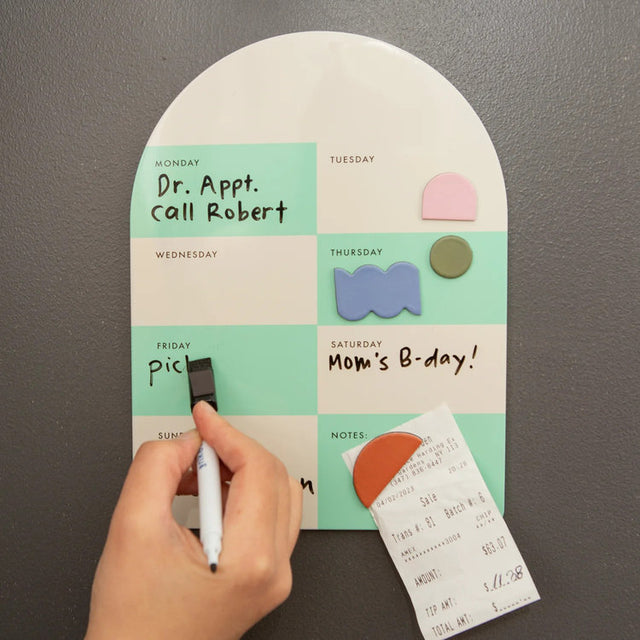 MONDAY
Dr. Appt.
Call Robert
TUESDAY
WEDNESDAY
THURSDAY
FRIDAY
pic
SATURDAY
Mom's B-day!
NOTES:
04/02/2023
20:28
Sale
Trans #: 81 Batch #: 6
CHIP
AMEX
************3004
AMOUNT: $63.07
TIP AMT: $
TOTAL AMT: $